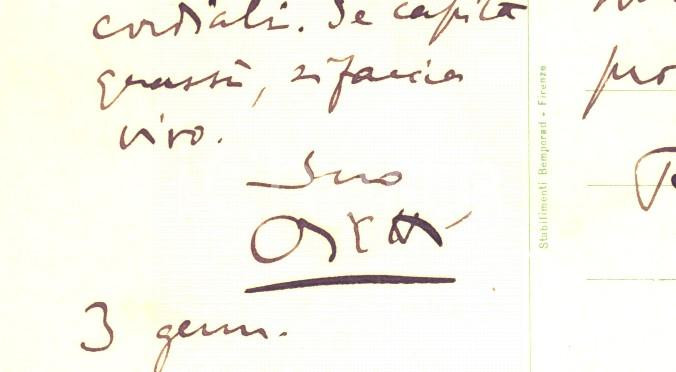 cordiali. Se capita
quassù, si faccia
vivo.
Suo
3 genn.
Stabilimenti Bemporad - Firenze
pro